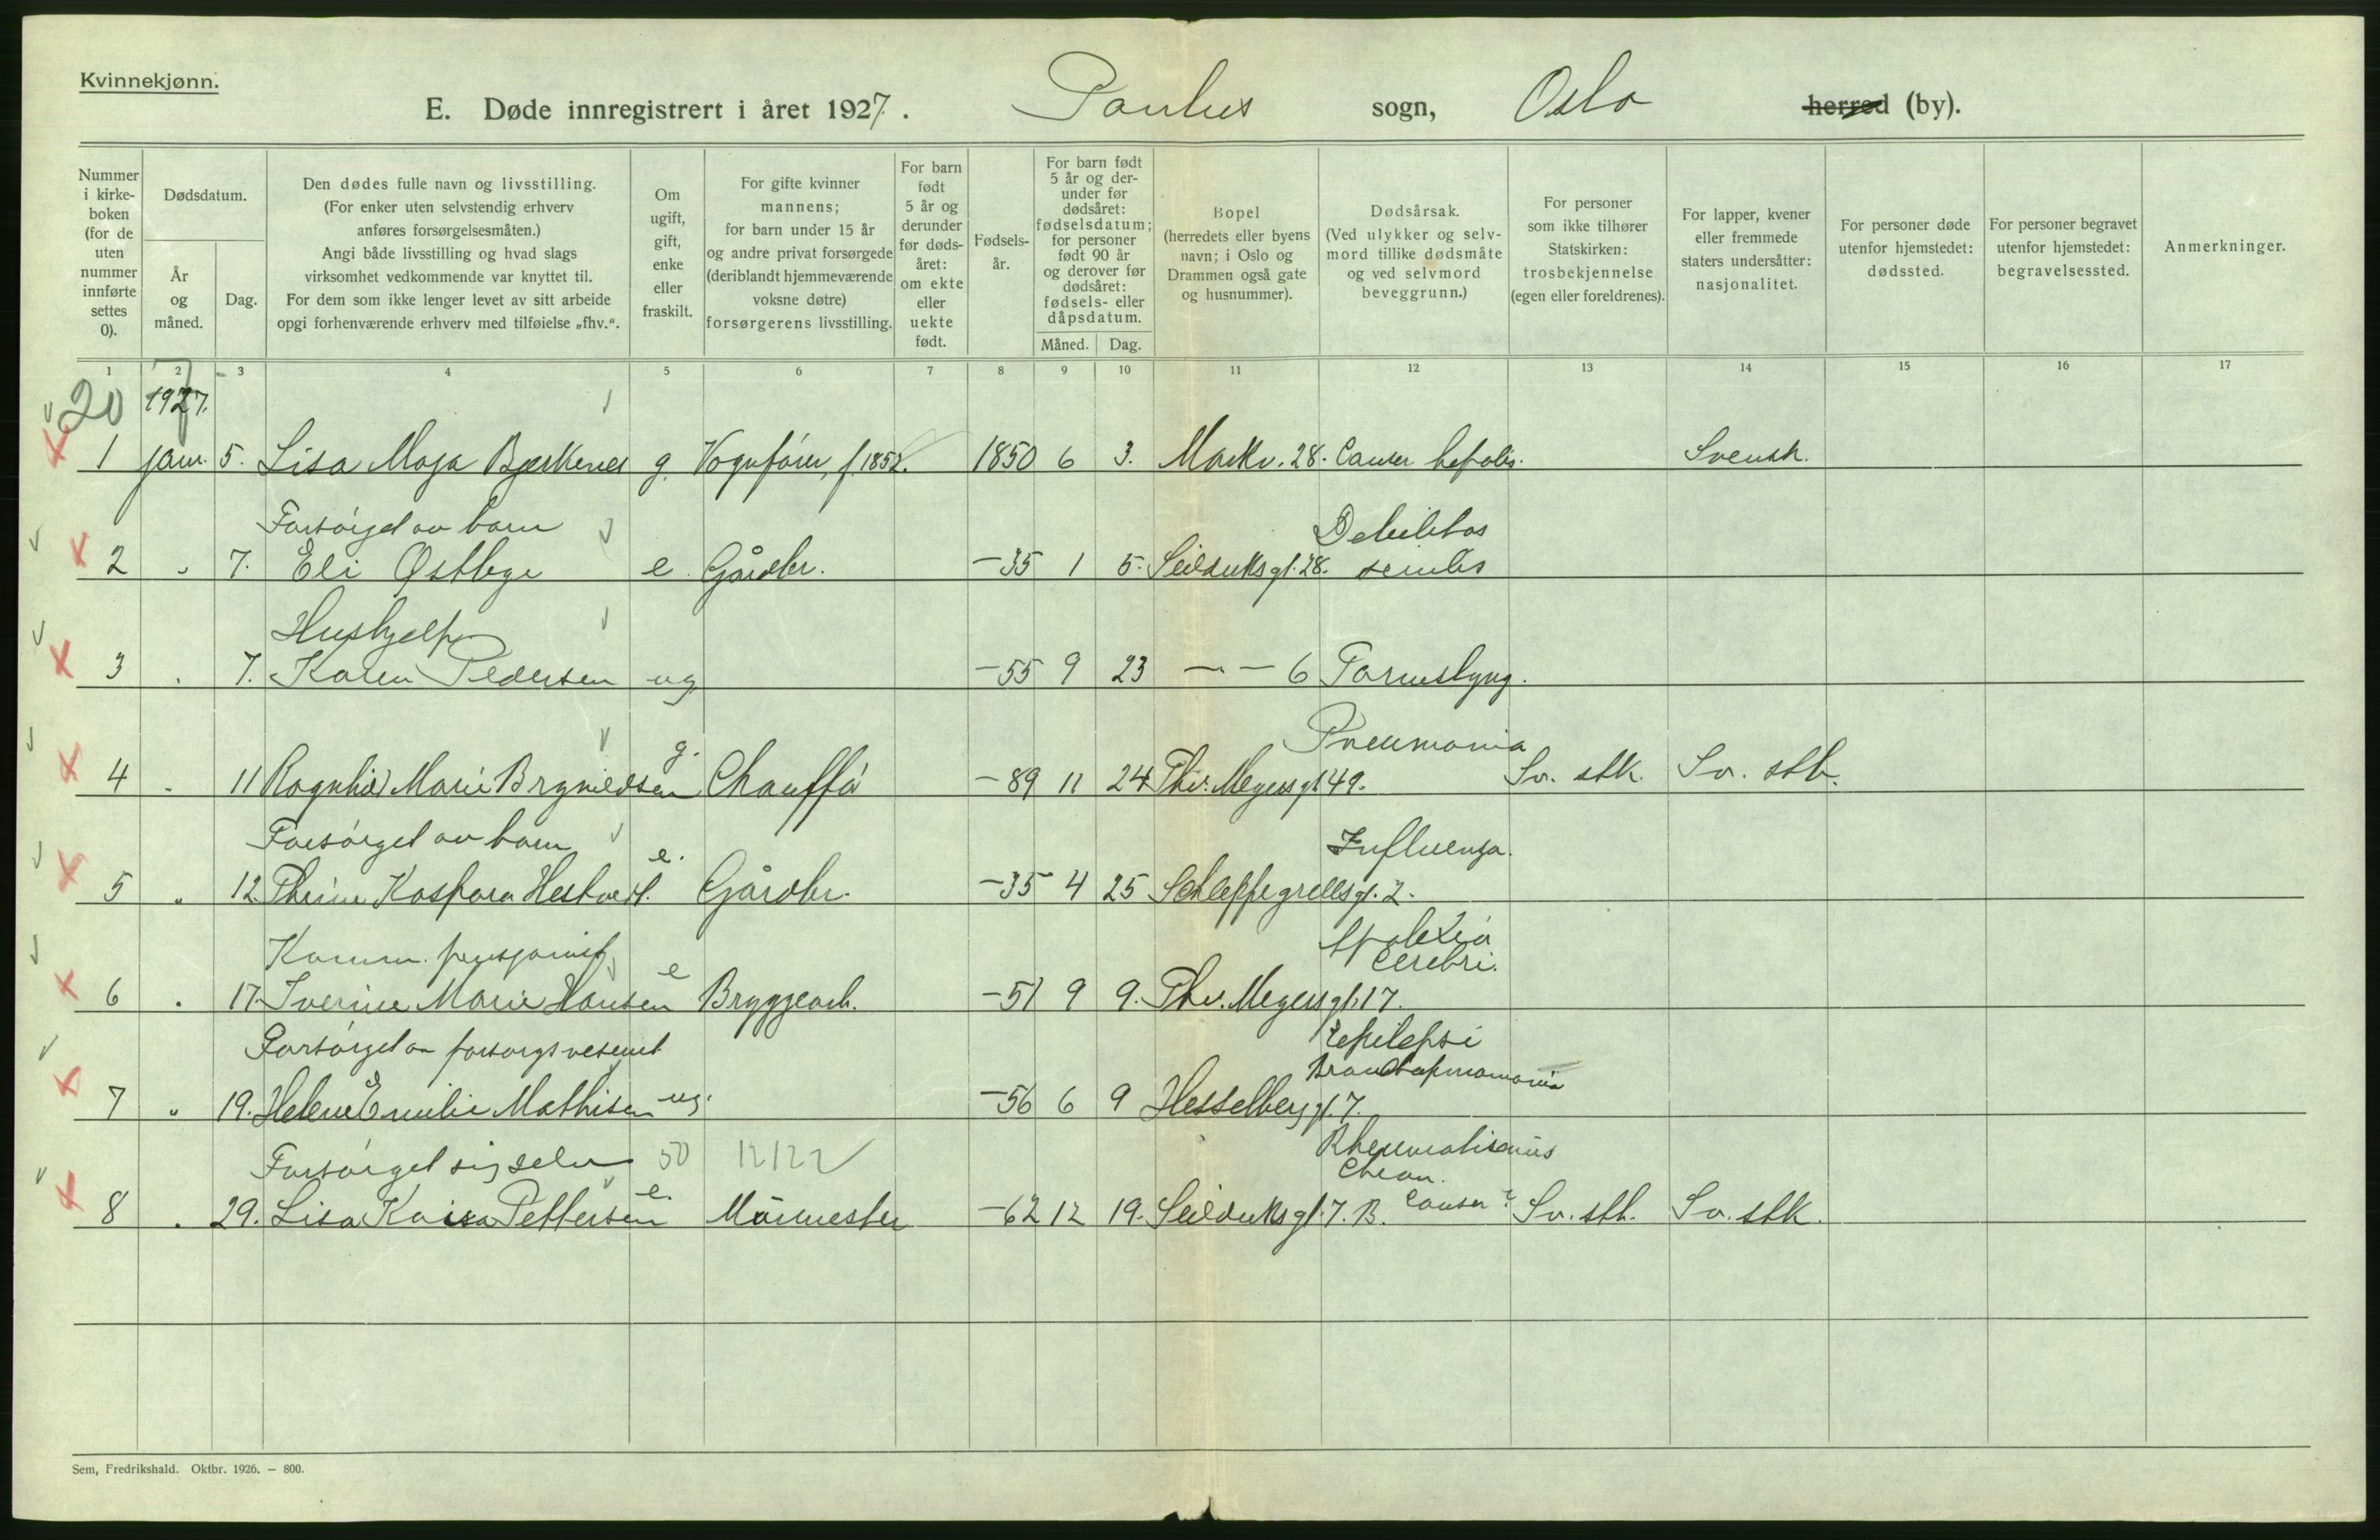 Kvinnekjønn.
E. Døde innregistrert i året 1927. Paulus sogn, Oslo herred (by).
Nummer i kirke-boken (for de uten nummer innførte settes 0).
Dødsdatum.
År og måned.
Dag.
Den dødes fulle navn og livsstilling.
(For enker uten selvstendig erhverv
anføres forsørgelsesmåten.)
Angi både livsstilling og hvad slags
virksomhet vedkommende var knyttet til.
For dem som ikke lenger levet av sitt arbeide
opgi forhenværende erhverv med tilføielse „fhv.“.
Om ugift, gift, enke eller fraskilt.
For gifte kvinner
mannens;
for barn under 15 år
og andre privat forsørgede
(deriblandt hjemmeværende
voksne døtre)
forsørgerens livsstilling.
For barn født 5 år og derunder før døds-året: om ekte eller uekte født.
Fødsels-år.
For barn født 5 år og der-under før dødsåret: fødselsdatum; for personer født 90 år og derover før dødsåret: fødsels- eller dåpsdatum.
Måned.
Dag.
Bopel
(herredets eller byens
navn; i Oslo og
Drammen også gate
og husnummer).
Dødsårsak.
(Ved ulykker og selv-
mord tillike dødsmåte
og ved selvmord
beveggrunn.)
For personer
som ikke tilhører
Statskirken:
trosbekjennelse
(egen eller foreldrenes).
For lapper, kvener
eller fremmede
staters undersåtter:
nasjonalitet.
For personer døde
utenfor hjemstedet:
dødssted.
For personer begravet
utenfor hjemstedet:
begravelsessted.
Anmerkninger.
1 2 3 4 5 6 7 8 9 10 11 12 13 14 15 16 17
20 1927.
1 Jan. 5. Lisa Maja g. Vognfører, f. 1852. 1850 6 3. Markv. 28. Cancer hepatis. Svensk.
Forsørget av barn Debilitas
2 " 7. Eli e. Gårdbr. -35 1 5. Seilduksgt. 28. senilis
Hushjelp
3 " 7. Karen Pedersen ug -55 9 23 - " - 6 Tarmslyng.
g. Pneumonia
4 " 11 Ragnhild Marie Brynildsen Chauffør -89 11 24 Thv. Meyersgt 49. Sv. stk. Sv. stb.
Forsørget av barn e. Influenza.
5 " 12. Kaspara Gårdbr. -35 4 25 Schleppegrellsgt. 2.
Komm. pensjonist e Apoplexia Cerebri.
6 " 17. Iverine Marie Hansen Bryggearb. -51 9 9. Thv. Meyersgt. 17.
Forsørget av forsorgsvesenet Epilepsi
7 " 19. Helene Emilie Mathisen ug. -56 6 9 Hesselberggt. 7.
Forsørget sig selv 50 12122 Rheumatismus Chron.
8 " 29. Lisa Kaisa Pettersen e. Murmester -62 12 19. Seilduksgt. 7. B. Cancer? Sv. stk. Sv. stk.
Sem, Fredrikshald. Oktbr. 1926. — 800.